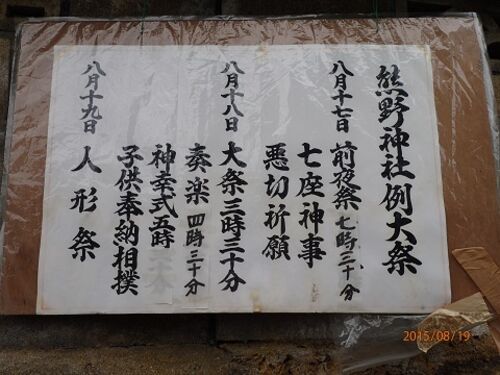 熊野神社例大祭
八月十七日 前夜祭 七時三十分
七座神事
悪切祈願
八月十八日 大祭三時三十分
奏楽 四時三十分
神幸式五時
子供奉納相撲
八月十九日 人形祭
2015/08/19